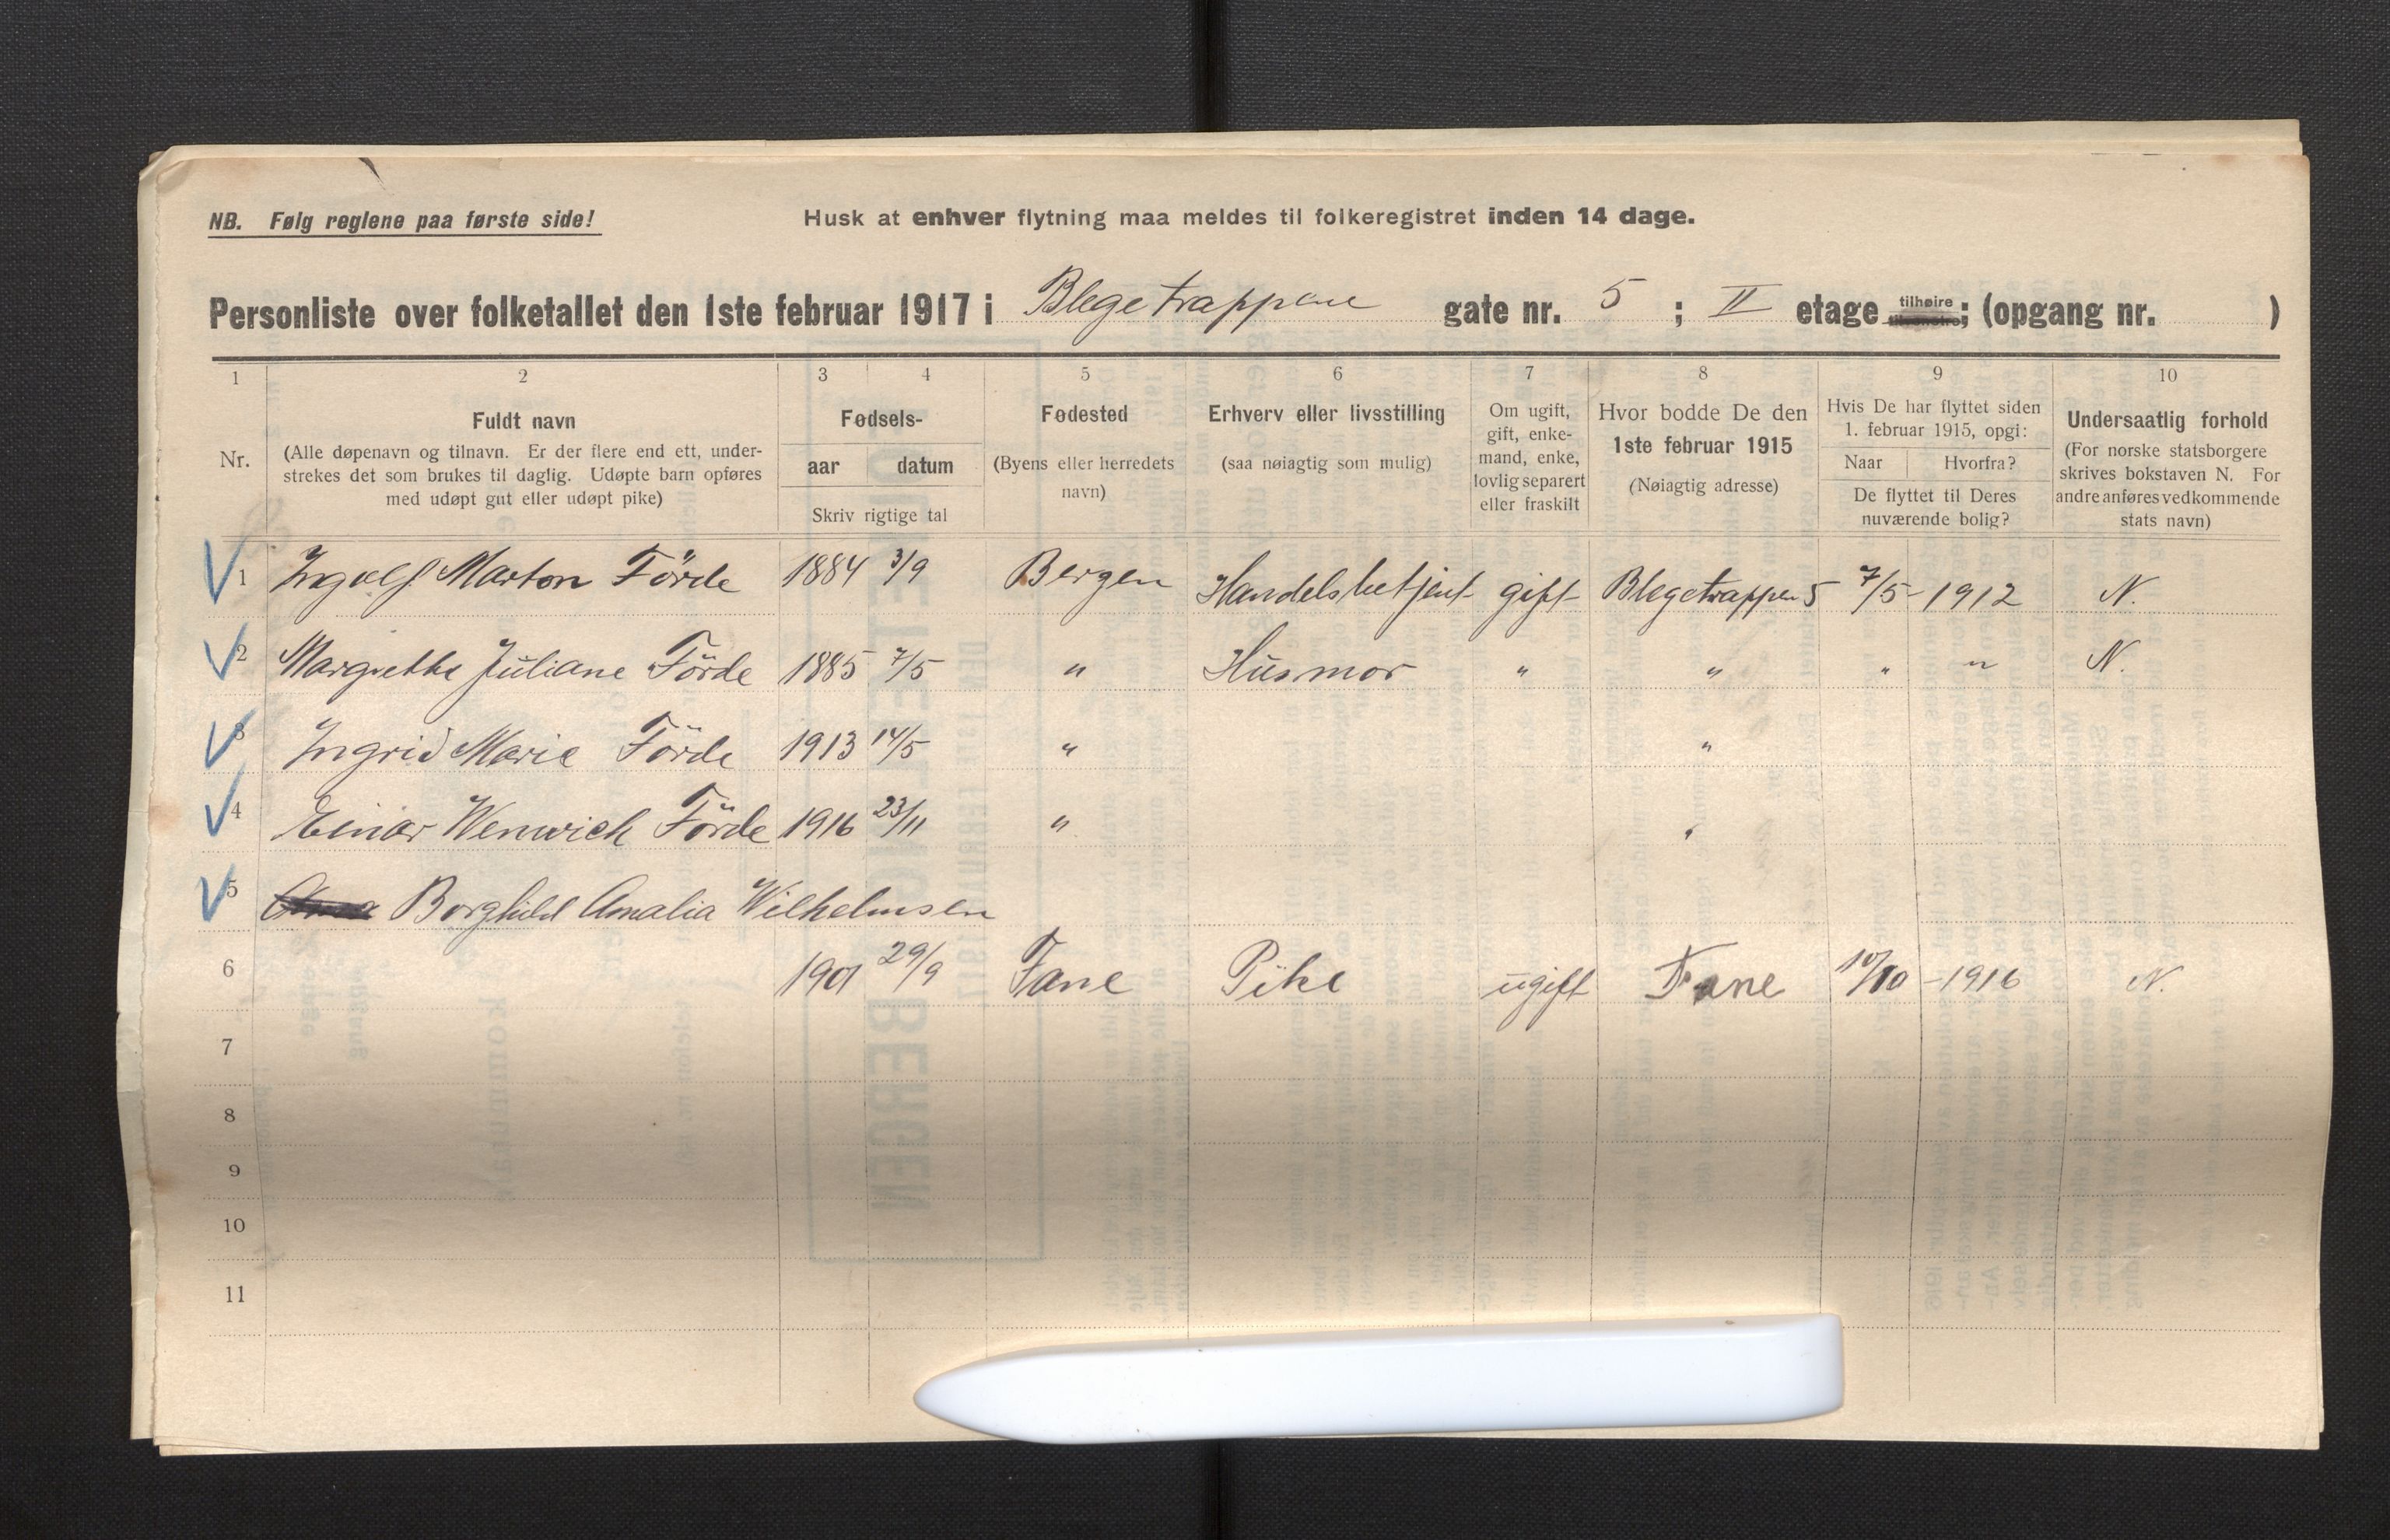 NB. Følg reglene paa første side!
Husk at enhver flytning maa meldes til folkeregistret inden 14 dage.
Personliste over folketallet den 1ste februar 1917 i Blegetrappene gate nr. 5 ; II etage tilhøire ; (opgang nr. )
1 2 3 4 5 6 7 8 9 10
Nr.
Fuldt navn
(Alle døpenavn og tilnavn. Er der flere end ett, under-
strekes det som brukes til daglig. Udøpte barn opføres
med udøpt gut eller udøpt pike)
Fødsels-
aar datum
Skriv rigtige tal
Fødested
(Byens eller herredets
navn)
Erhverv eller livsstilling
(saa nøiagtig som mulig)
Om ugift,
gift, enke-
mand, enke,
lovlig separert
eller fraskilt
Hvor bodde De den
1ste februar 1915
(Nøiagtig adresse)
Hvis De har flyttet siden
1. februar 1915, opgi:
Naar Hvorfra?
De flyttet til Deres
nuværende bolig?
Undersaatlig forhold
(For norske statsborgere
skrives bokstaven N. For
andre anføres vedkommende
stats navn)
1 Ingolf Marton Förde 1884 3/9 Bergen Handelsbetjent gift Blegetrappen 5 7/5 - 1912 N.
2 Margrethe Juliane Förde 1885 7/5 " Husmor " " " " N.
3 Ingrid Marie Förde 1913 14/5 " "
4 Einar Wenwich Förde 1916 23/11 " "
5 Borghild Amalia Wilhelmsen
6 1901 29/9 Fane Pike ugift Fane 10/10 - 1916 N.
7
8
9
10
11